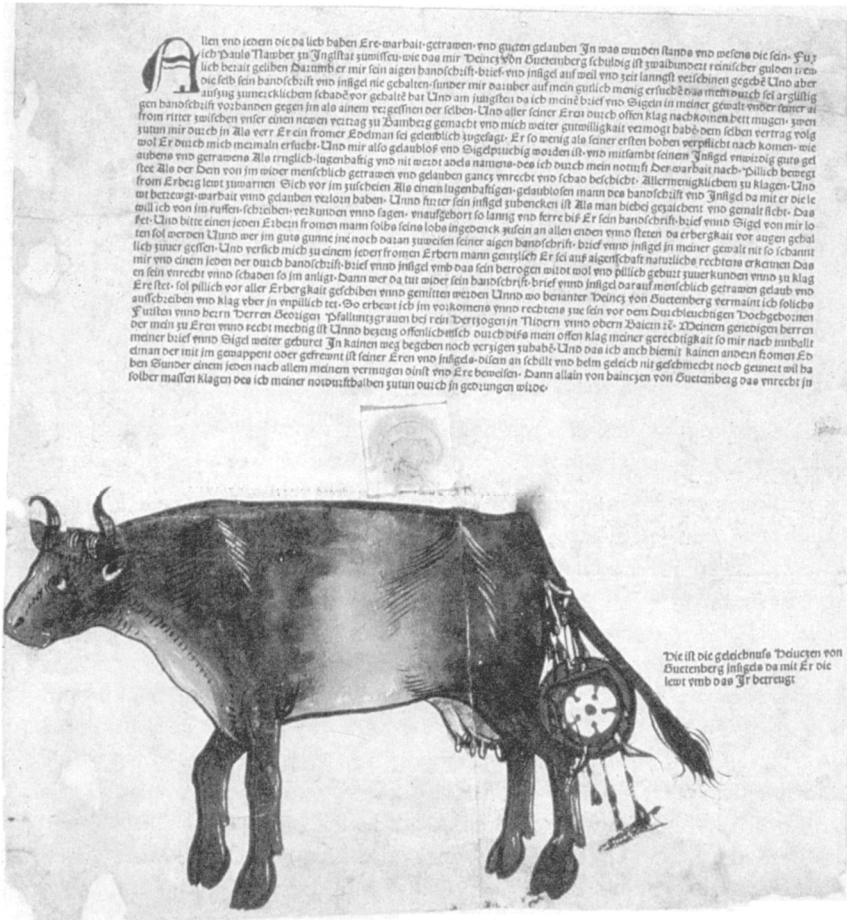 Allen vnd jedern die da lieb haben Ere· warhait· getrawen· vnd guten gelauben Jn was wirden stands vnd wesens die sein· Fug
ich Pauls Nawber zu Jnglstat zuwissen· wie das mir Heincz von Guttenberg schuldig ist zwaihundert reinischer gulden trew
lich berait gelihen Darumb er mir sein aigen handschrift· brief· vnd jnsigel auf weil vnd zeit lanngst verschinen gegebē Und aber
die selb sein handschrift vnd jnsigel nie gehalten· sunder mir darüber auf mein gutlich menig ersuchē das mein durch sei arglistig
aufzug zumercklichem schadē vor gehaltē hat Und am jungsten da ich meinē brief vnd Sigeln in meiner gewalt vnder seiner ai
gen handschrift vorhanden gegen jm als ainem vergessnen der selben· Und aller seiner Eren durch offen klag nachkomen hett mugen· zwen
from ritter zwischen vnser einen newen vertrag zu Bamberg gemacht vnd mich weiter gutwilligkait vermogt habē dem selben vertrag volg
zutun mir durch jn Als verr Er ein fromer Edelman sei gelenblich zugesagt· Er so wenig als seiner ersten hohen verpflicht nach komen· wie
wol Er durch mich mermaln ersucht· Und mir also gelaublos vnd Sigelpruchig worden ist· vnd mitsambt seinem Jnsigel vnwirdig guts gel
aubens vnd getrawens Als trnglich· lugenhaftig vnd nit werdt adels namens· des ich durch mein noturft Der warhait nach· Pillich bewegt
stee Als der Dem von jm wider menschlich getrawen vnd gelauben gancz vnrecht vnd schad beschicht· Allermenigklichem zu klagen· Und
from Erberg lewt zuwarnen Sich vor jm zuscheien Als einen lugenhaftigen· gelaublosen mann des handschrift vnd Jnsigel da mit er die le
wt betrewgt· warhait vnnd gelauben verlorn haben· Unnd furter sein jnsigel zubencken ist Als man hiebei gezaichent vnd gemalt sicht· Das
will ich von jm ruffen· schreiben· verkunden vnnd sagen· vnaufgehort so lanng vnd ferre bis Er sein handschrift· brief vnnd Sigel von mir lo
set· Und bitte einen jeden Erbern fromen mann solhs seins lobs ingedenck zusein an allen enden vnnd steten da erbergkait vor augen gehal
ten sol werden Unnd wer jm guts gunne jne noch daran zuweisen seiner aigen handschrift· brief vnnd jnsigel in meiner gewalt nit so schannt
lich zuuergessen· Und versich mich zu einem jeden fromen Erbern mann gentzlich Er sei auß aigenschaft naturlichs rechtens erkennen Das
mir vnd einem jeden der durch handschrift· brief vnnd jnsigel vmb das sein betrogen wirdt wol vnd pillich geburt zuuerkunden vnnd zu klag
en sein vnrecht vnnd schaden so jm anligt· Dann wer da tut wider sein handschrift· brief vnnd jnsigel darauf menschlich getrawen gelaub vnd
Ere stet· sol pillich vor aller Erbergkait geschihen vnnd gemitten werden Unnd wo benanter Heincz von Guttenberg vermaint ich solichs
ausschreiben vnd klag vber jn vnpillich tet· So erbewt ich jm vorkomens vnnd rechtens zue sein vor dem Durchleuchtigen Hochgebornen
Fursten vnnd herrn Herren Georigen Pfallntzgrauen bei rein Hertzogen jn Nidern vnnd obern Baiern ꝛc· Meinem genedigen herren
der mein zu Eren vnnd recht mechtig ist Unnd bezeug offenlichensch durch diss mein offen klag meiner gerechtigkait so mir nach innhallt
meiner brief vnnd Sigel weiter geburet Jn kainen weg begeben noch verzigen zuhabē· Und das ich auch hiemit kainen andern fromen Ed
elman der mit jm gewappent oder gefrewnt ist seiner Eren vnd jnsigels· disem an schillt vnd helm geleich nit geschmecht noch geunert wil ha
ben Sunder einem jeden nach allem meinem vermugen dinst vnd Ere beweisen· Dann allain von hainczen von Guttenberg das vnrecht jn
solher massen klagen des ich meiner noturfthalben zutun durch jn gedrungen wirde·
Hie ist die geleichnuss Heinczen von
Guttenberg jnsigels da mit Er die
lewt vmb das Jr betreugt